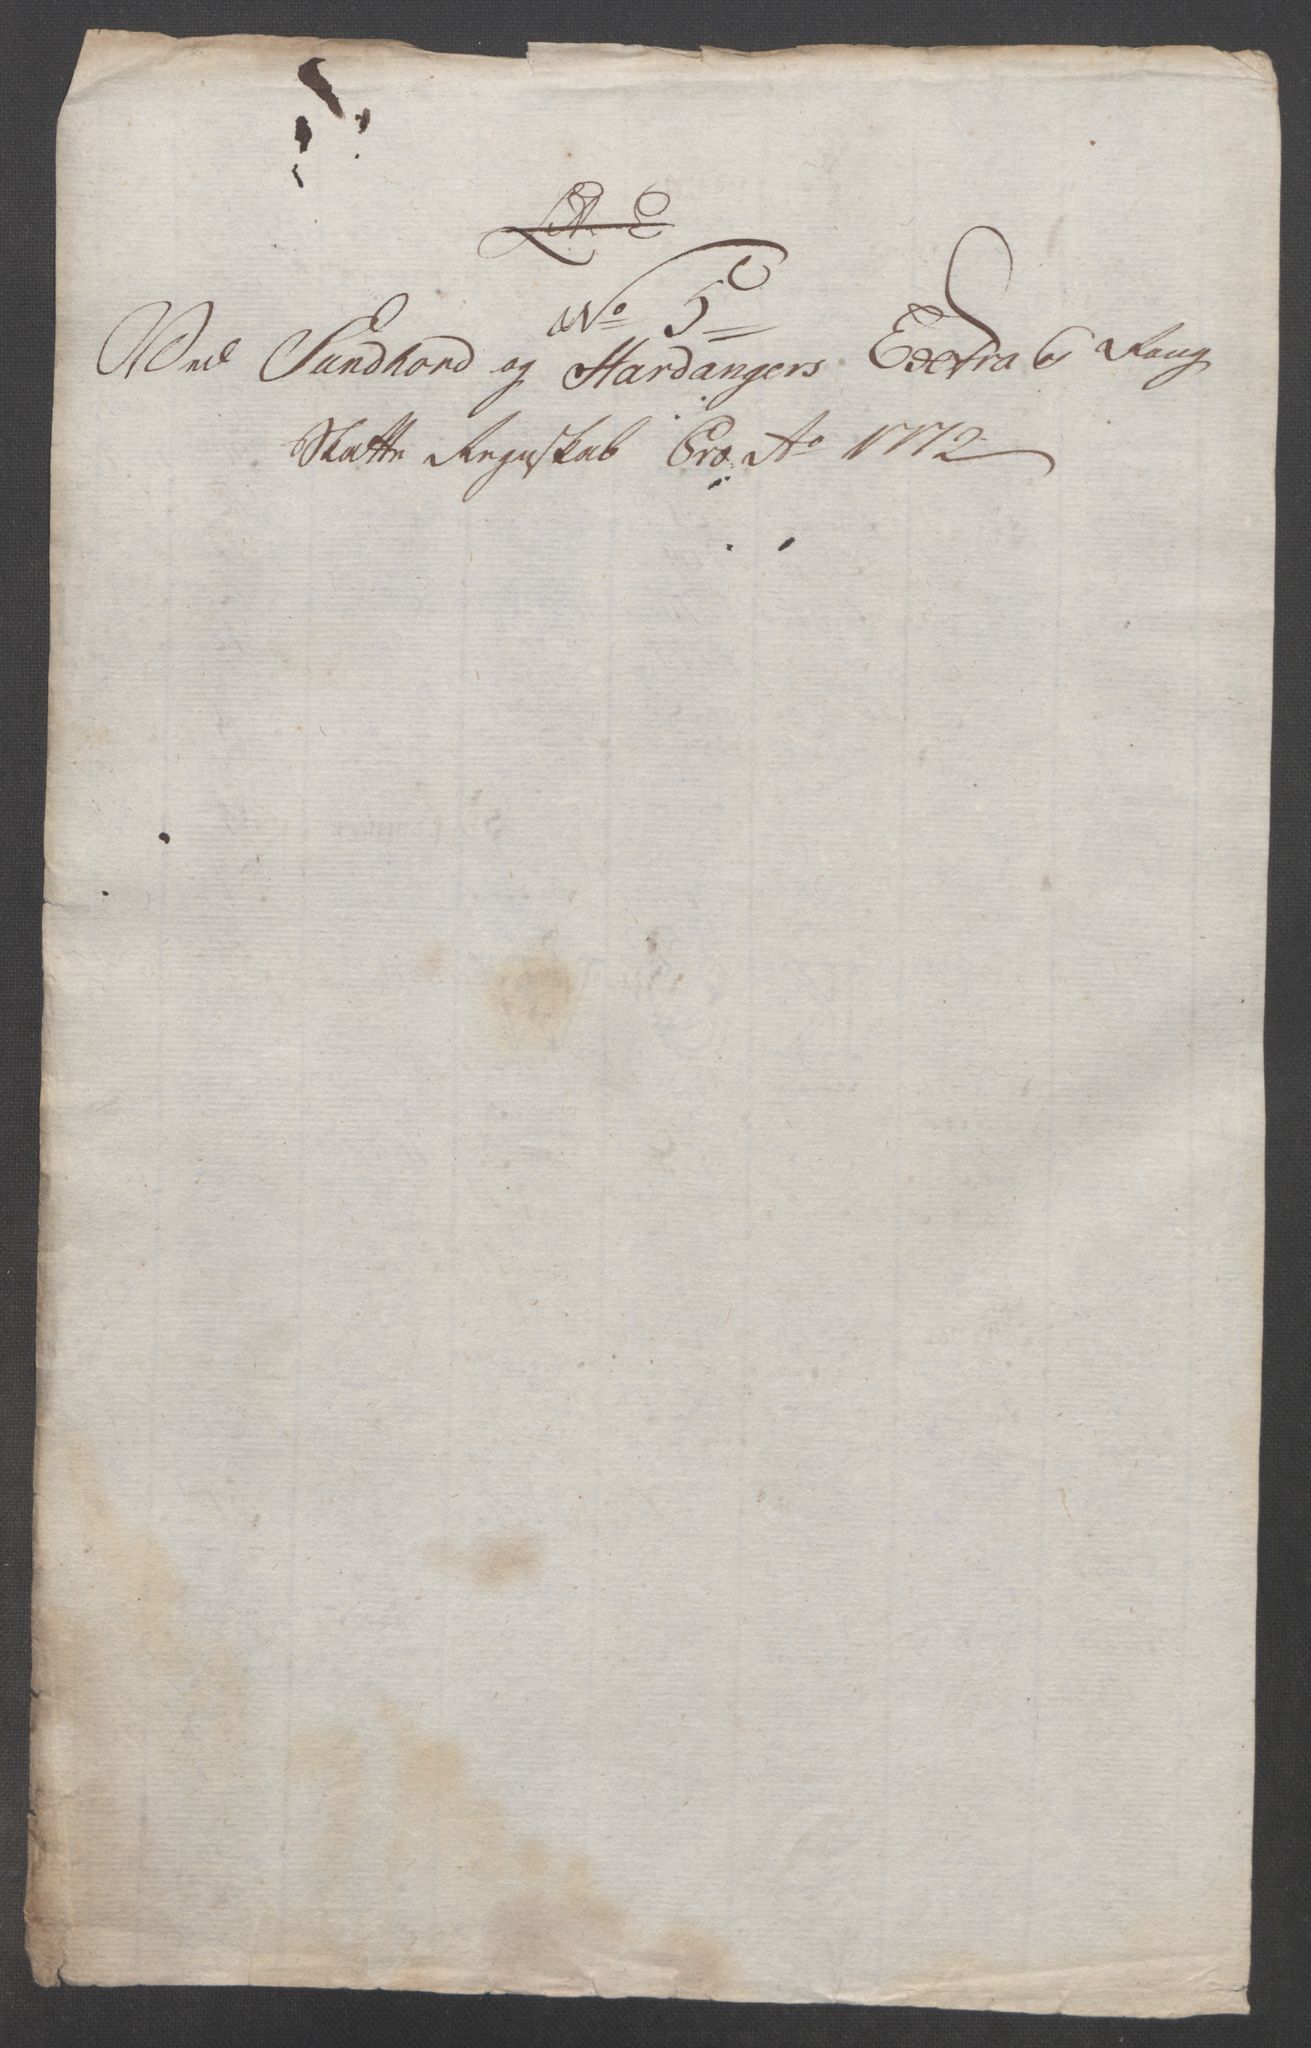 Litr. C
No 5
Ved Sundhord og Hardangers Extra & Rang
Skatte Regnskab Pro Ao 1772